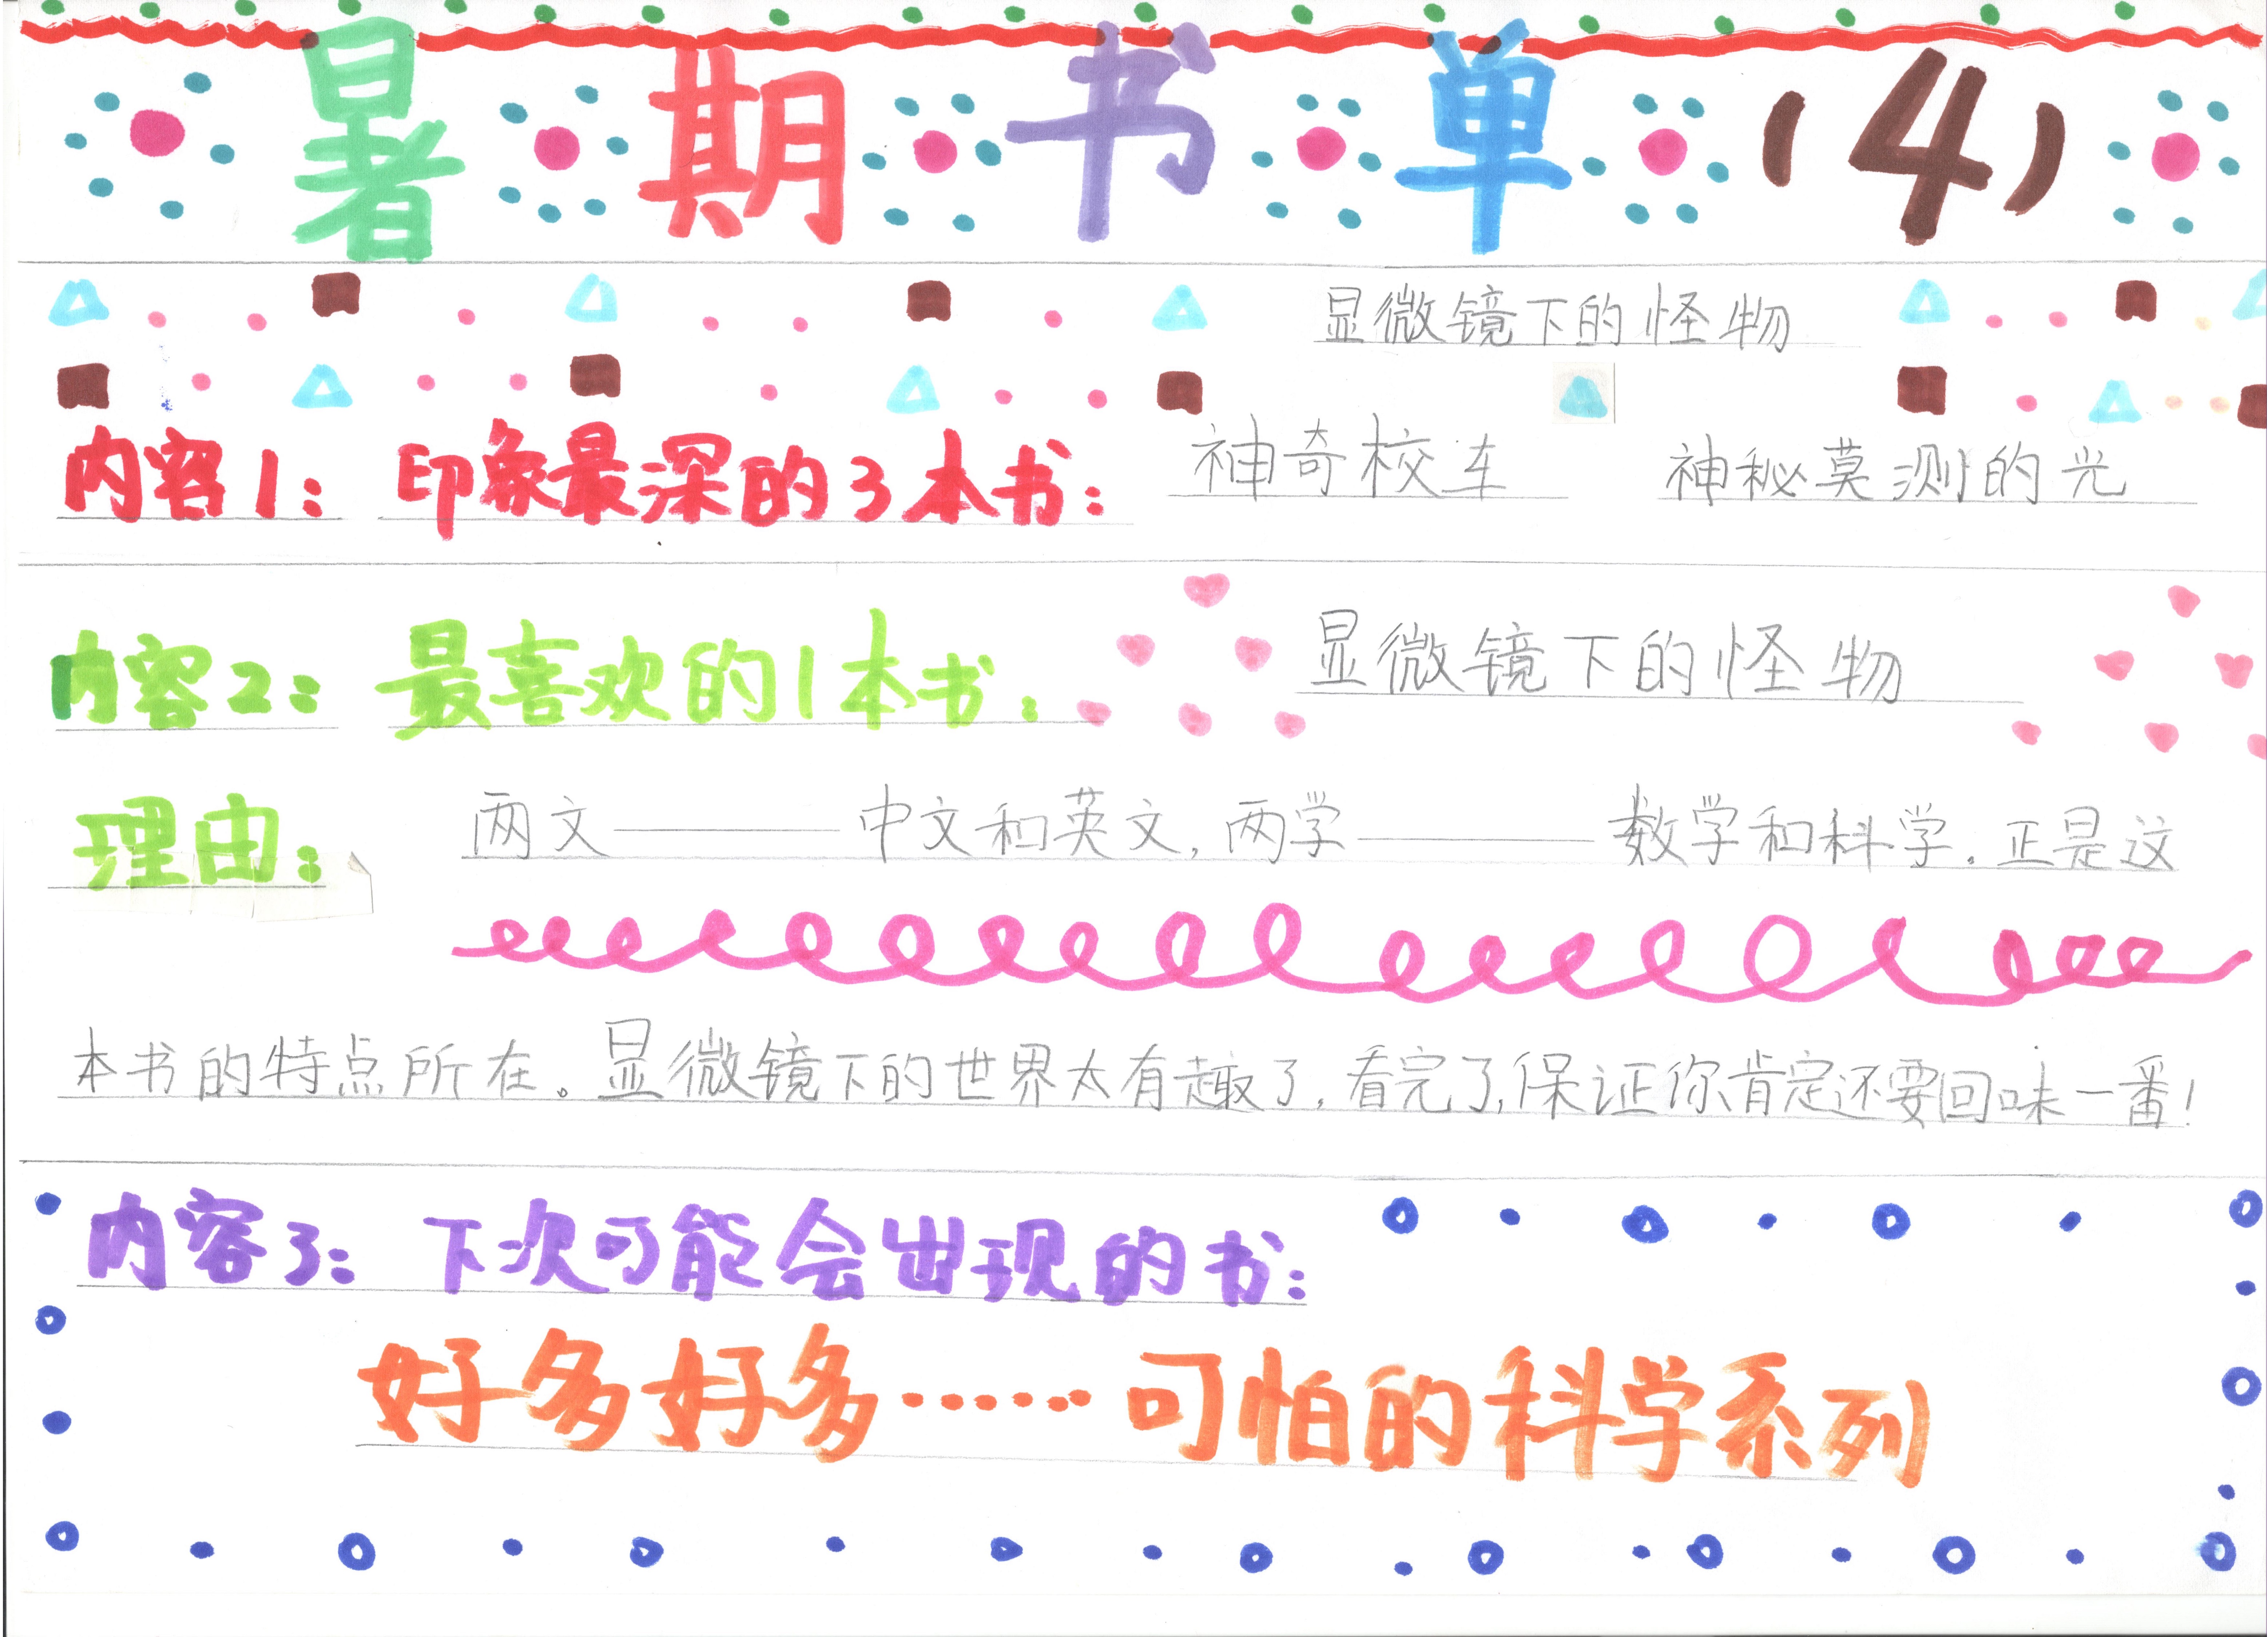 暑期书单(4)
显微镜下的怪物
内容1: 印象最深的3本书: 神奇校车 神秘莫测的光
内容2: 最喜欢的1本书: 显微镜下的怪物
理由: 两文——中文和英文,两学——数学和科学。正是这
本书的特点所在。显微镜下的世界太有趣了,看完了,保证你肯定还要回味一番!
内容3: 下次可能会出现的书:
好多好多……可怕的科学系列